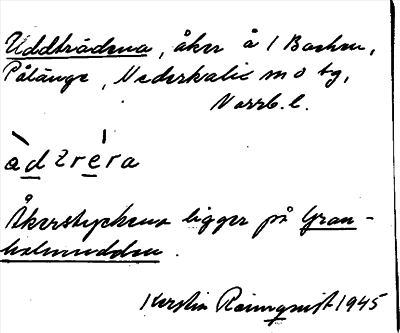 Uddträdena, åker å 1 Backen,
Pålänge, Nederkalix sn o tg,
Norrb. l.
àd2réra
Åkerstyckena ligger på Gran-
holmudden.
Kerstin Renqvist 1945